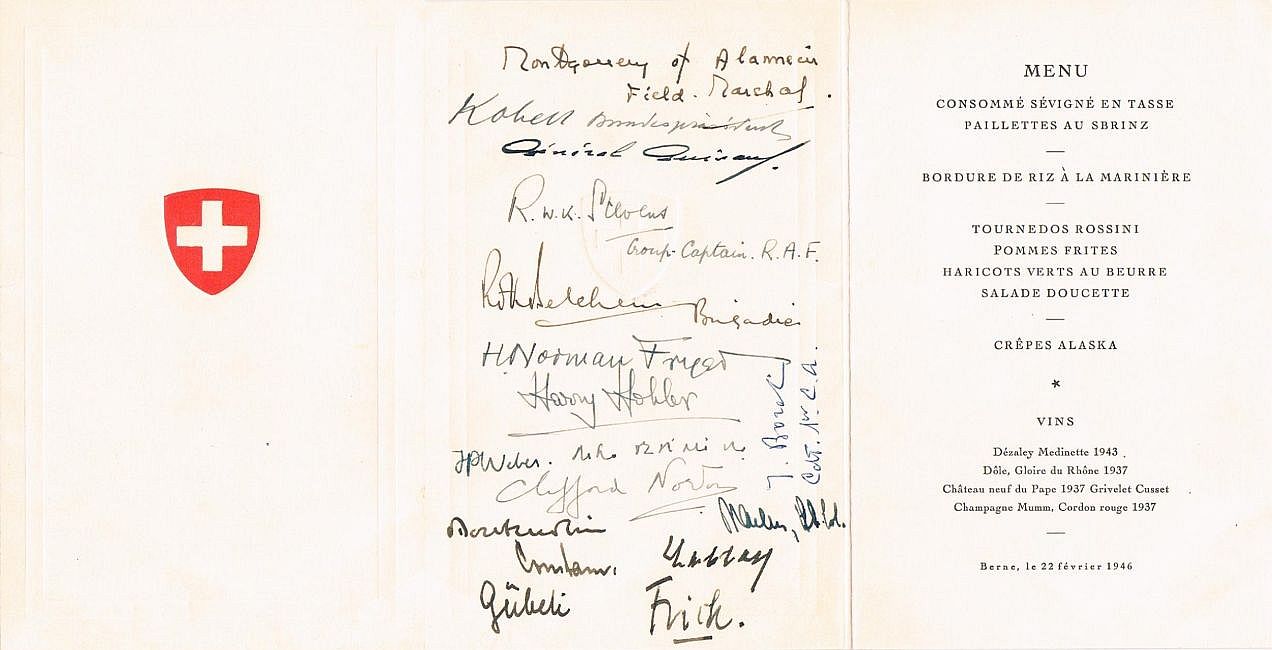 Montgomery of Alamein
Field-Marshal.
Kobelt Bundespräsident
Général Guisan.
R.W.K. Stevens
Group-Captain. R.A.F.
Belchem
Brigadier
H. Norman
Harry Hohler
J. Borel
Cdt. 1er C.A.
HPWeber.
Clifford Norton
Gübeli
Frick.
MENU
CONSOMMÉ SÉVIGNÉ EN TASSE
PAILLETTES AU SBRINZ
BORDURE DE RIZ À LA MARINIÈRE
TOURNEDOS ROSSINI
POMMES FRITES
HARICOTS VERTS AU BEURRE
SALADE DOUCETTE
CRÊPES ALASKA
*
VINS
Dézaley Medinette 1943
Dôle, Gloire du Rhône 1937
Château neuf du Pape 1937 Grivelet Cusset
Champagne Mumm, Cordon rouge 1937
Berne, le 22 février 1946